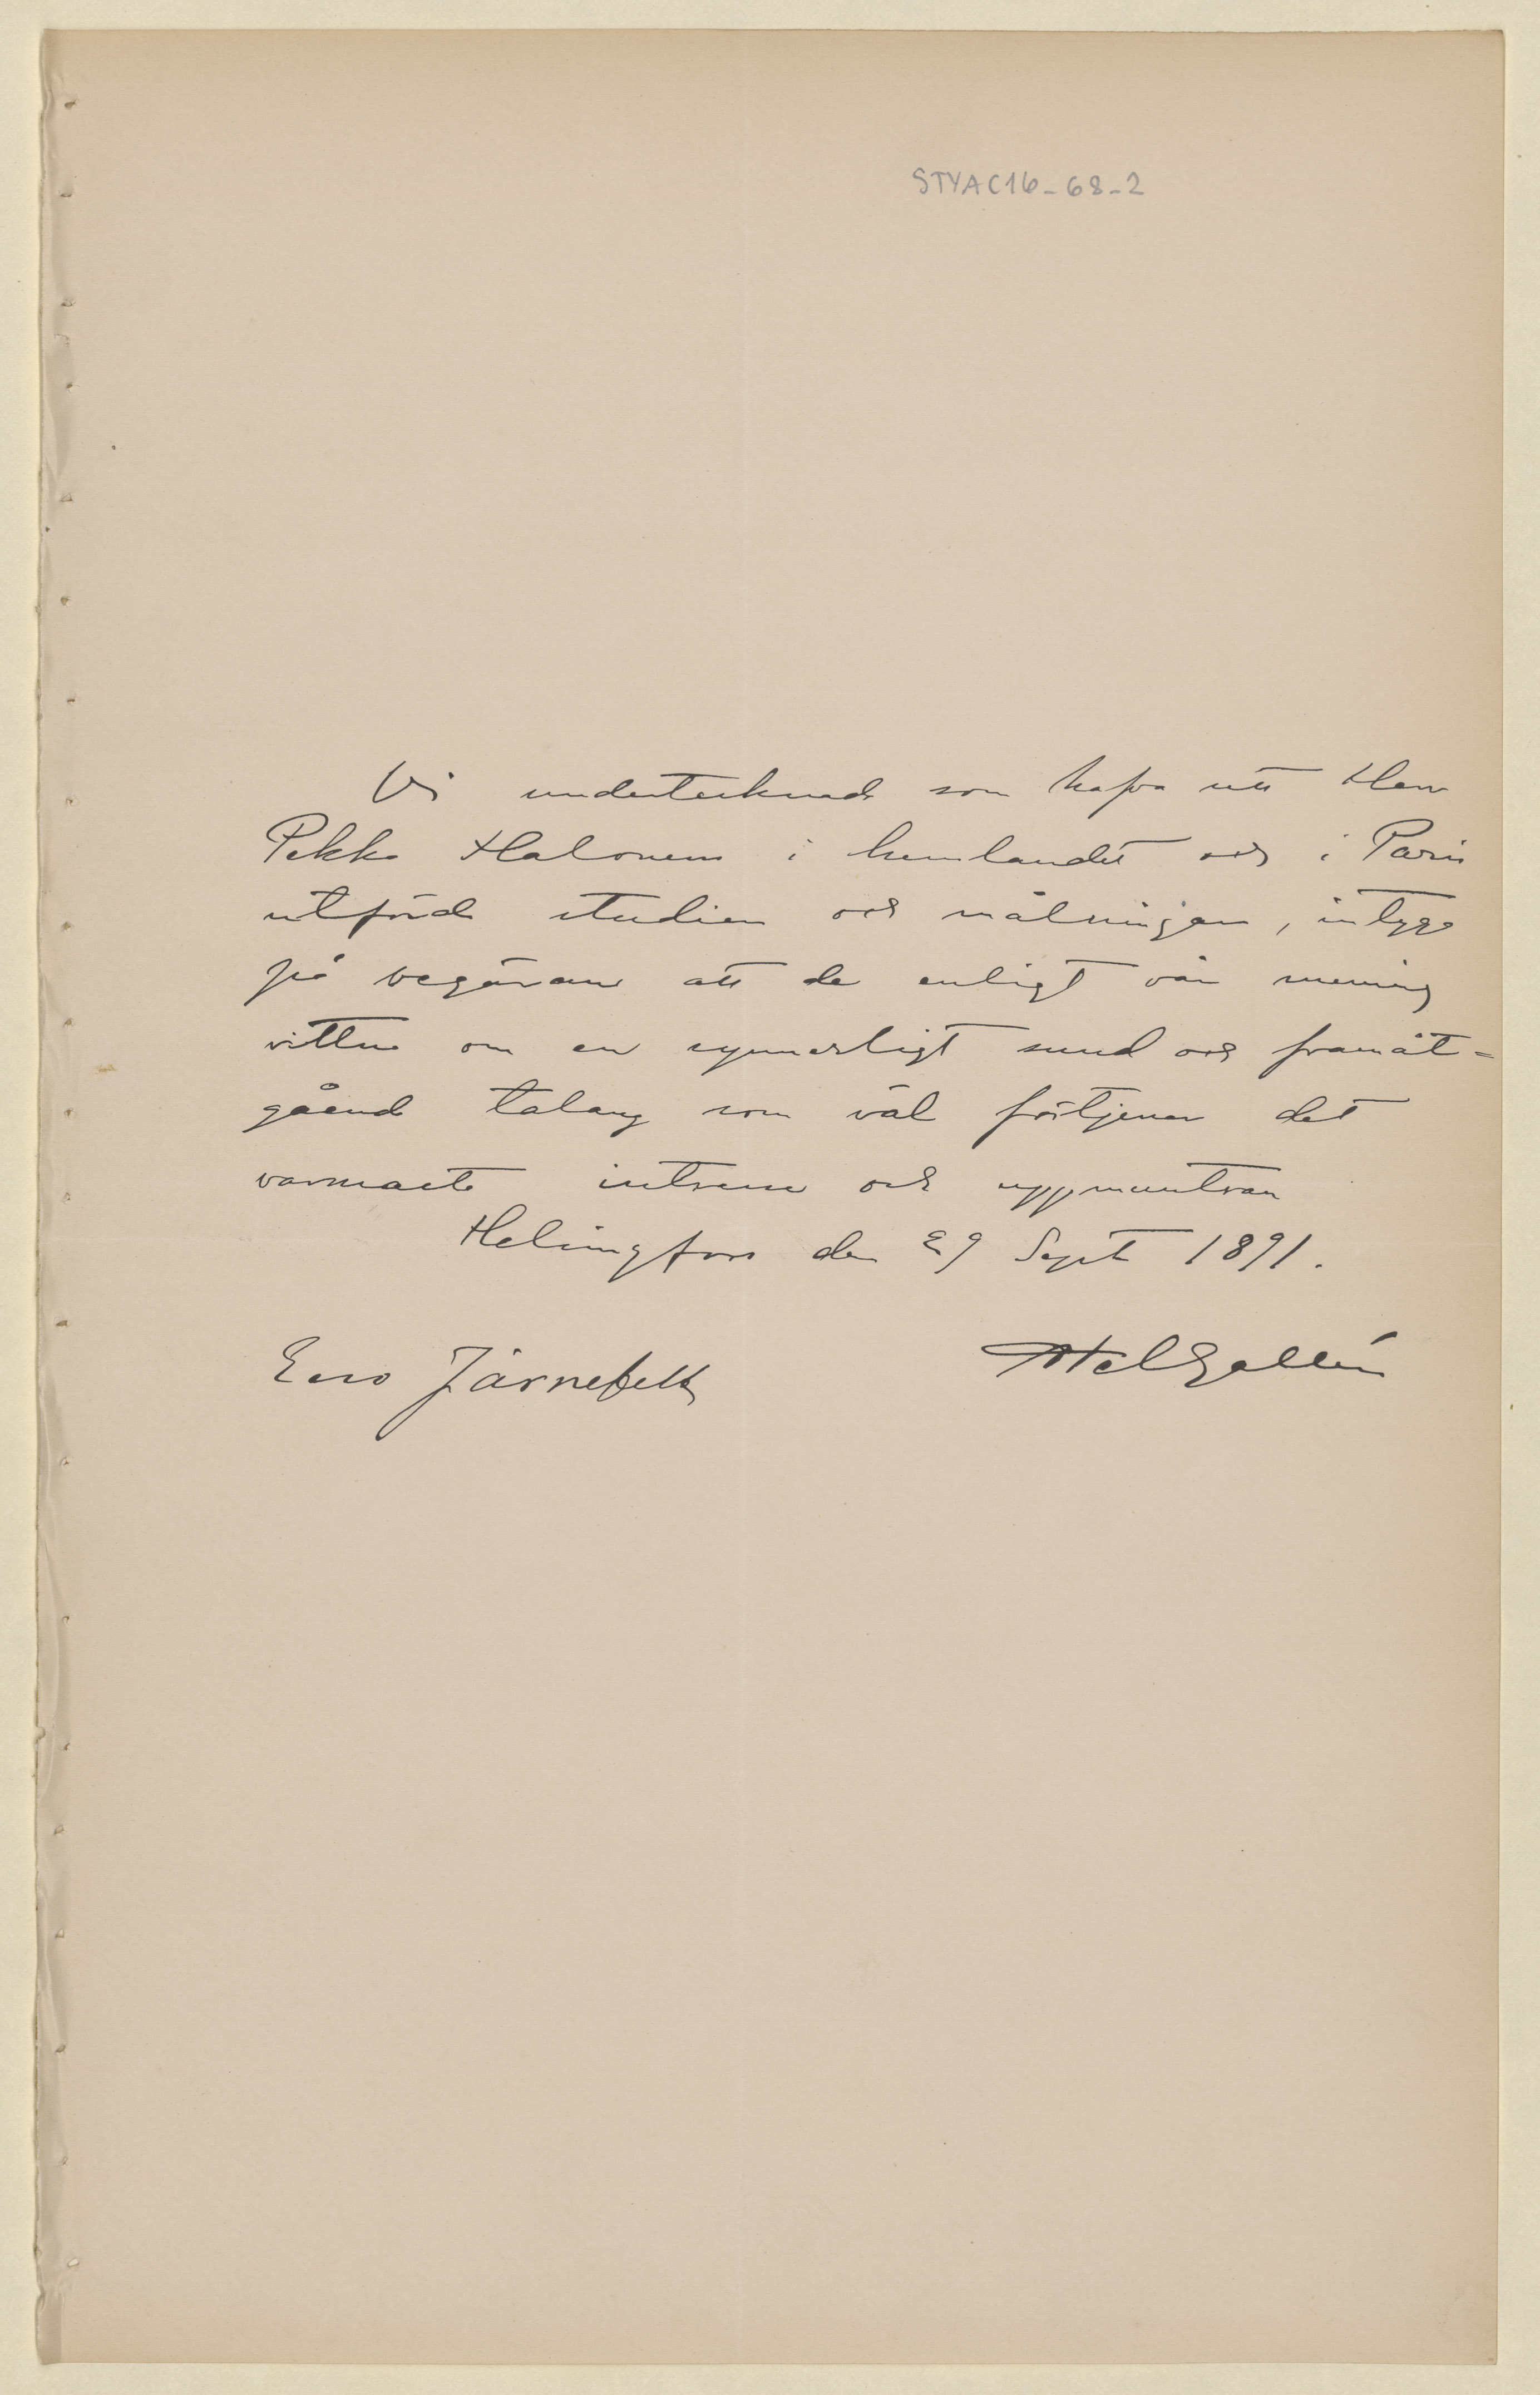 STYAC16-68-2
Vi undertecknade som hafva sett Herr
Pekka Halonens i hemlandet och i Paris
utförda studier och målningar, intyga
på begäran att de enligt vår mening
vittna om en synnerligt sund och framåt=
gående talang som väl förtjenar det
varmaste intresse och uppmuntran
Helsingfors den 29 Sept 1891.
Eero Järnefelt
Axel Gallén